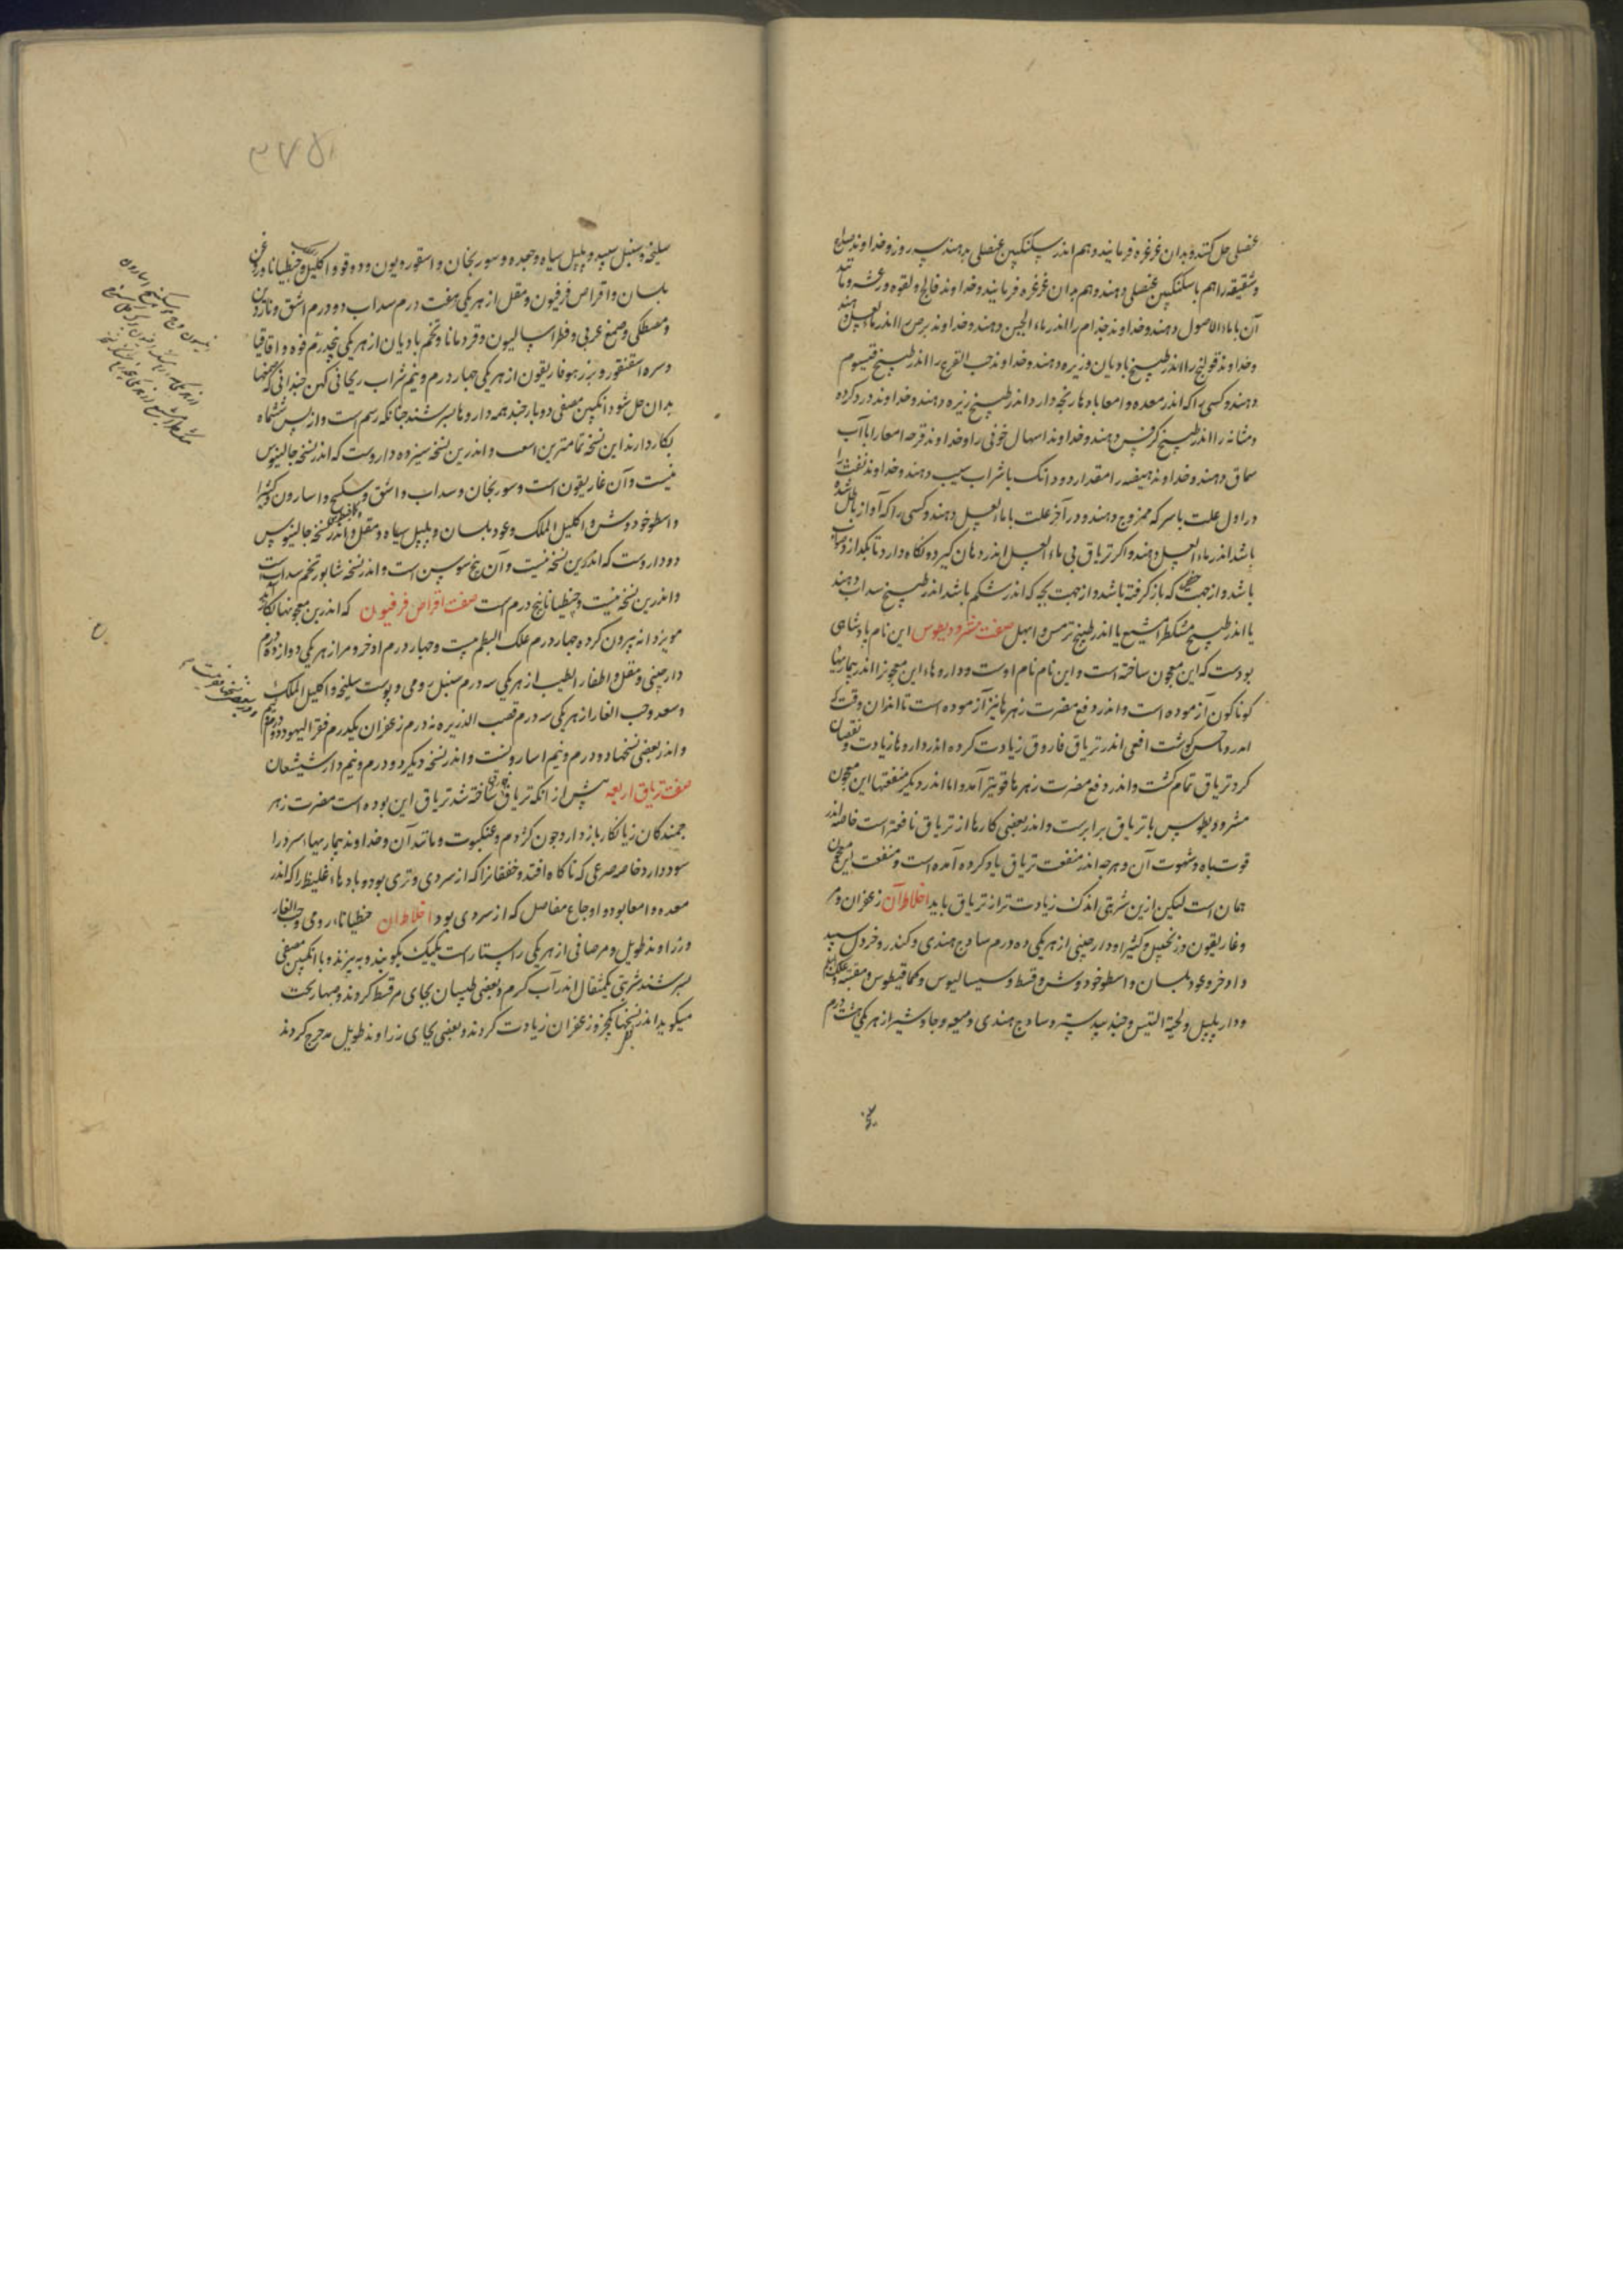 عنصلی حل کنند و بدان غرغره فرمایند و هم اندر سکنکبین عنصلی بدهند سه روز و خداوند صداع
و شقیقه را هم با سکنکبین عنصلی دهند و هم بدان غرغره فرمایند و خداوند فالج و لقوه و رعشه و مانند
آن با ماء الاصول دهند و خداوند جذام را اندر ماء الجبن دهند و خداوند برص را اندر ماء العسل دهند
و خداوند قولنج را اندر طبیخ بادیان و زیره دهند و خداوند حب القرع را اندر طبیخ قیسوم
دهند و کسی را که اندر معده و امعا بادها رنجه دارد اندر طبیخ زیره دهند و خداوند درد کرده
و مثانه را اندر طبیخ کرفس دهند و خداوند اسهال خونی را و خداوند قرحه امعا را با آب
سماق دهند و خداوند هیضه را مقدار دو دانک با شراب سیب دهند و خداوند نفث را
در اول علت با سرکه ممزوج دهند و در آخر علت با ماء العسل دهند و کسی را که آواز باطل شده
باشد اندر ماء العسل دهند و اکر تریاق بی ماء العسل اندر دهان کیرد و نکاه دارد تا بکدازد صواب
باشد و از جهت حیض که باز کرفته باشد و از جهت بچه که اندر شکم باشد اندر طبیخ سداب دهند
یا اندر طبیخ مشکطرامشیع یا اندر طبیخ ترمس و ابهل صفت مثرودیطوس این نام پادشاهی
بودست که این معجون ساخته است و این نام نام اوست و داروهاء این معجون را اندر بیماریها
کوناکون آزموده است و اندر دفع مضرت زهرها نیز آزموده است تا اندان وقت که
اندروماخس کوشت افعی اندر تریاق فاروق زیادت کرده اندر داروها زیادت و نقصان
کرد تریاق تمام کشت و اندر دفع مضرت زهرها قویتر آمد و اما اندر دیکر منفعتها این معجون
مثرودیطوس با تریاق برابرست و اندر بعضی کارها از تریاق نافعترست خاصه اندر
قوت باه و شهوت آن و هرچه اندر منفعت تریاق یاد کرده آمده است و منفعت این معجون
همان است لیکن ازین شربتی اندک زیادت تر از تریاق باید اخلاط آن زعفران و مر
و غاریقون و زنجبیل و کثیرا و دارچینی از هر یکی ده درم ساذج هندی و کندر و خردل سپید
و اذخر و عود بلسان و اسطوخودوش و قسط و سیسالیوس و کمافیطوس و مقنه و علک
و دار پلپل و لحیة التیس و جند بیدستر و ساذج هندی و میعه و جاوشیر از هر یکی هشت درم
سلیخه و سنبل سپید و پلپل سیاه و جعده و سورنجان و اسقوردیون و دوقو و اکلیل و جنطیانا و روغن
بلسان و اقراص فرفیون و مقل از هر یکی هفت درم سداب دو درم اشق و ناردین
و مصطکی و صمغ عربی و فطراسالیون و قردمانا و تخم بادیان از هر یکی پنج درم فوه و اقاقیا
و سره اسقنقور و بزر هوفاریقون از هر یکی چهار درم و نیم شراب ریحانی کهن چندانی که صمغها
بدان حل شود انکبین مصفی دو بار چند همه داروها بسرشند چنانکه رسم است و از پس شش ماه
بکار دارند این نسخه تمامترین است و اندرین نسخه سیزده داروست که اندر نسخه جالینوس
نیست و آن غاریقون است و سورنجان و سداب و اشق و سکبینج و اسارون و کثیرا
و اسطوخودوش و اکلیل الملک و عود بلسان و پلپل سیاه و مقل و اندر نسخه جالینوس
دو داروست که اندرین نسخه نیست و آن بیخ سوسن است و اندر نسخه شابور تخم سداب است
و اندرین نسخه نیست و جنطیانا پنج درم است صفت اقراص فرفیون که اندرین معجونها بکار آید
مویز دانه بیرون کرده چهار درم علک البطم بیست و چهار درم اذخر و مر از هر یکی دوازده درم
دارچینی و مقل و اظفار الطیب از هر یکی سه درم سنبل رومی و پوست سلیخه و اکلیل الملک
و سعد و حب الغار از هر یکی سه درم قصب الذریره نه درم زعفران یکدرم فقر الیهود دو درم و نیم
و اندر بعضی نسخها دو درم و نیم اسارونست و اندر نسخه دیکر دو درم و نیم دارشیشعان
صفت تریاق اربعه پیش از انکه تریاق فاروق ساخته شد تریاق این بوده است مضرت زهر
جمندکان زیانکار باز دارد چون کژدم و عنکبوت و مانند آن و خداوند بیماریهاء سرد را
سود دارد خاصه صرعی که ناکاه افتد و خفقانرا که از سردی و تری بود و بادهاء غلیظ را که اندر
معده و امعا بود و اوجاع مفاصل که از سردی بود اخلاط آن جنطیاناء رومی و حب الغار
و زراوند طویل و مر صافی از هر یکی راستا راست یکیک بکوبند و به بیزند و با انکبین مصفی
بسرشند شربتی یکمثقال اندر آب کرم و بعضی طبیبان بجای مر قسط کردند و مهاربخت
میکوید اندر نسخها یکجزو زعفران زیادت کردند و بعضی بجای زراوند طویل مدحرج کردند